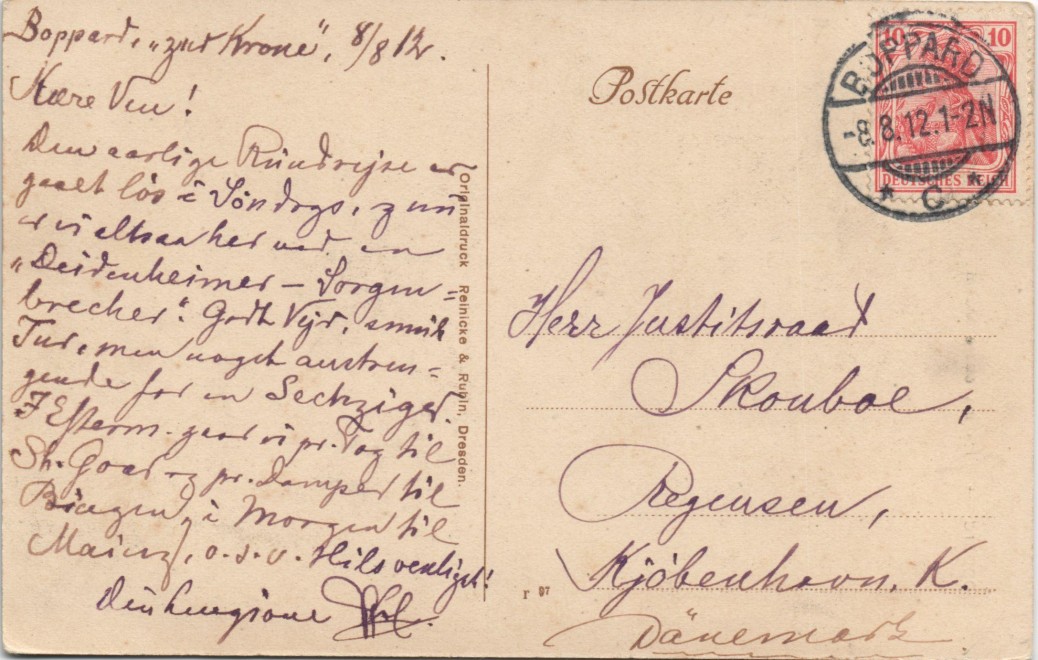 Boppard, „zur Krone“, 8/8 12.
Kære Ven!
Den aarlige Rundrejse er
gaaet løs i Söndags, og nu
er vi altsaa her ved en
„Deidenheimer – Sorgen=
brecher“. Godt Vejr, smuk
Tur, men noget anstren=
gende for en Sechziger.
I Efterm. gaar vi pr. Tog til
St. Goar og pr. Damper til
Bingen, i Morgen til
Mainz, o.s.v. Hils venligst!
Din hengivne
Originaldruck Reinicke & Rubin, Dresden.
r 97
Postkarte
10 10
DEUTSCHES REICH
BOPPARD
-8.8.12.1-2N
* C *
Herr Justitsraad
Skouboe,
Regensen,
Kjöbenhavn, K.
Dänemark